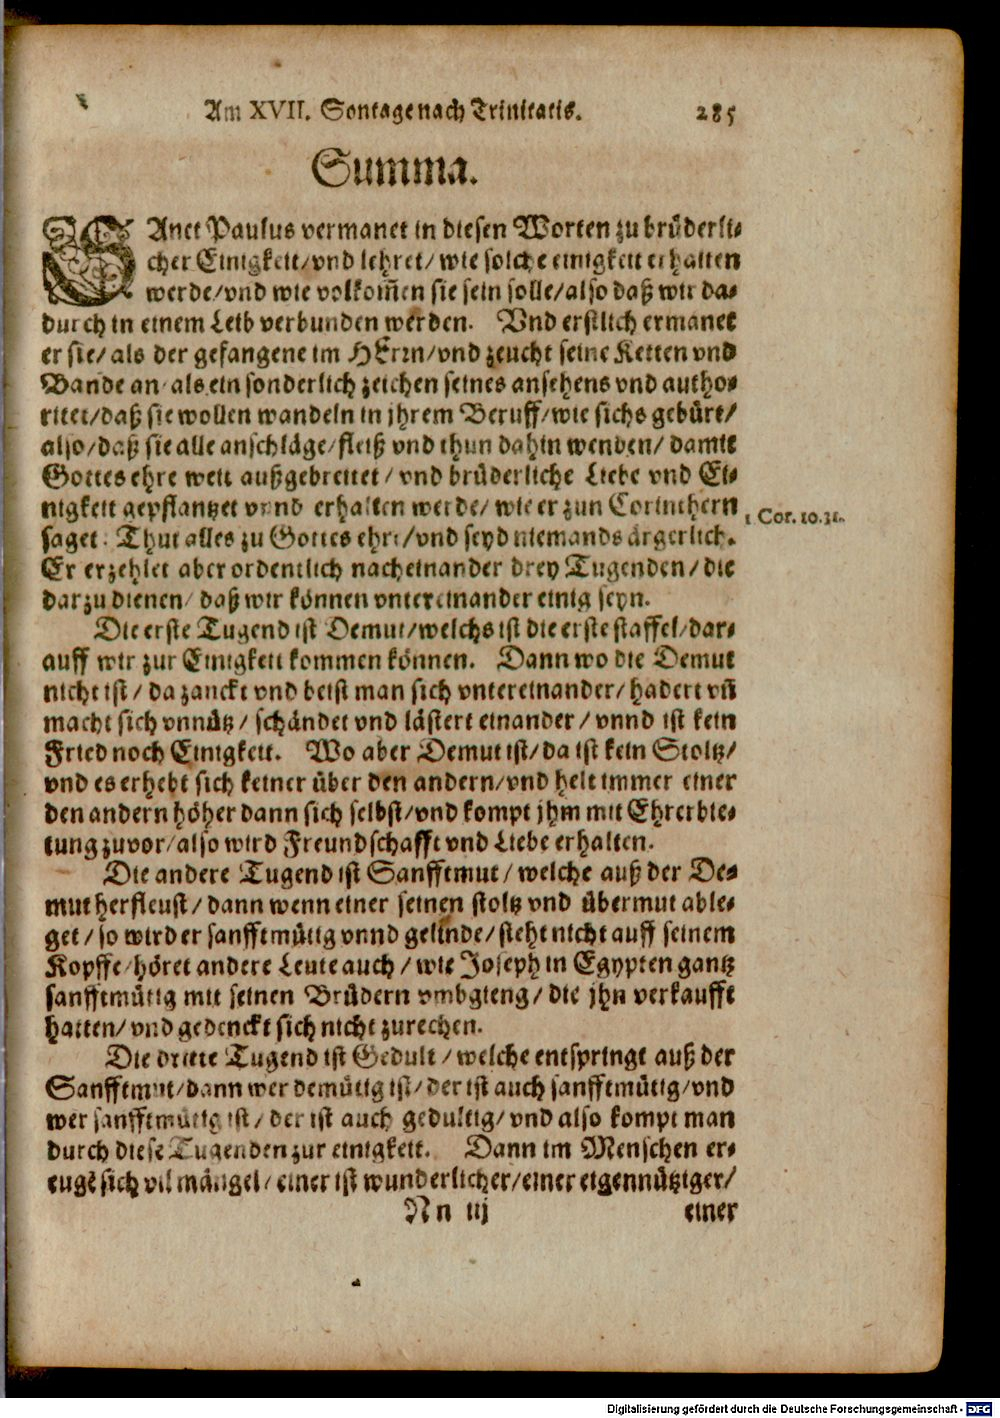 Am XVII. Sontage nach Trinitatis. 285
Summa.
SAnct Paulus vermanet in diesen Worten zu brüderli-
cher Einigkeit/vnd lehret/wie solche einigkeit erhalten
werde/vnd wie volkom̄en sie sein solle/also daß wir da-
durch in einem Leib verbunden werden. Vnd erstlich ermanet
er sie/als der gefangene im HErrn/vnd zeucht seine Ketten vnd
Bande an/als ein sonderlich zeichen seines ansehens vnd autho-
ritet/daß sie wollen wandeln in jhrem Beruff/wie sichs gebürt/
also/daß sie alle anschläge/fleiß vnd thun dahin wenden/damit
Gottes ehre weit außgebreitet/vnd brüderliche Liebe vnd Ei-
nigkeit gepflantzet vnnd erhalten werde/wie er zun Corinthern
saget. Thut alles zu Gottes ehre/vnd seyd niemands ärgerlich.
1 Cor. 10.31.
Er erzehlet aber ordentlich nacheinander drey Tugenden/die
darzu dienen/daß wir können vntereinander einig seyn.
Die erste Tugend ist Demut/welchs ist die erste staffel/dar-
auff wir zur Einigkeit kommen können. Dann wo die Demut
nicht ist/da zanckt vnd beist man sich vntereinander/hadert vn̄
macht sich vnnütz/schändet vnd lästert einander/vnnd ist kein
Fried noch Einigkeit. Wo aber Demut ist/da ist kein Stoltz/
vnd es erhebt sich keiner über den andern/vnd helt immer einer
den andern höher dann sich selbst/vnd kompt jhm mit Ehrerbie-
tung zuvor/also wird Freundschafft vnd Liebe erhalten.
Die andere Tugend ist Sanfftmut/welche auß der De-
mut herfleust/dann wenn einer seinen stoltz vnd übermut able-
get/so wird er sanfftmütig vnnd gelinde/steht nicht auff seinem
Kopffe/höret andere Leute auch/wie Joseph in Egypten gantz
sanfftmütig mit seinen Brüdern vmbgieng/die jhn verkaufft
hatten/vnd gedenckt sich nicht zurechen.
Die dritte Tugend ist Gedult/welche entspringt auß der
Sanfftmut/dann wer demütig ist/der ist auch sanfftmütig/vnd
wer sanfftmütig ist/der ist auch gedultig/vnd also kompt man
durch diese Tugenden zur einigkeit. Dann im Menschen er-
eugē sich vil mängel/einer ist wunderlicher/einer eigennütziger/
Nn iij einer
Digitalisierung gefördert durch die Deutsche Forschungsgemeinschaft - DFG